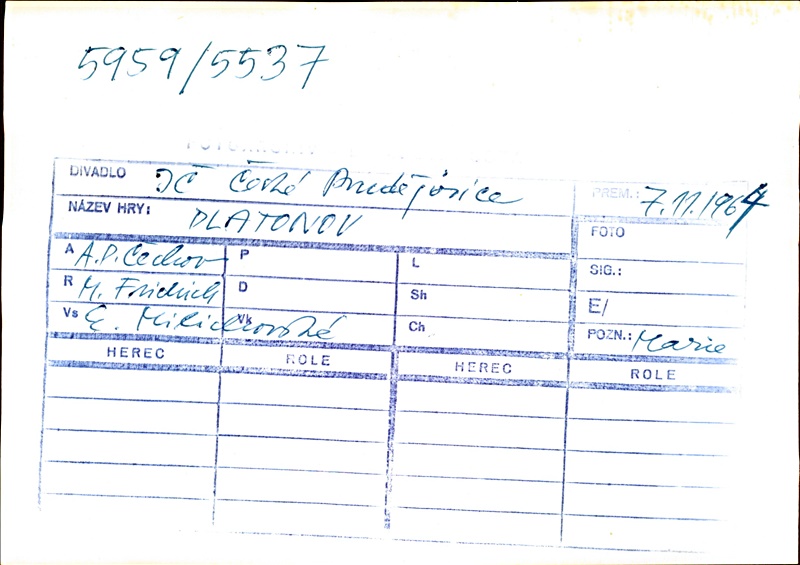 5959/5537
DIVADLO JČ České Budějovice PREM.: 7.11.1964
NÁZEV HRY: PLATONOV FOTO
A A.P. Čechov P L SIG.:
R M. Fridrich D Sh E/
Vs Vk Ch POZN.: Marie
HEREC ROLE HEREC ROLE